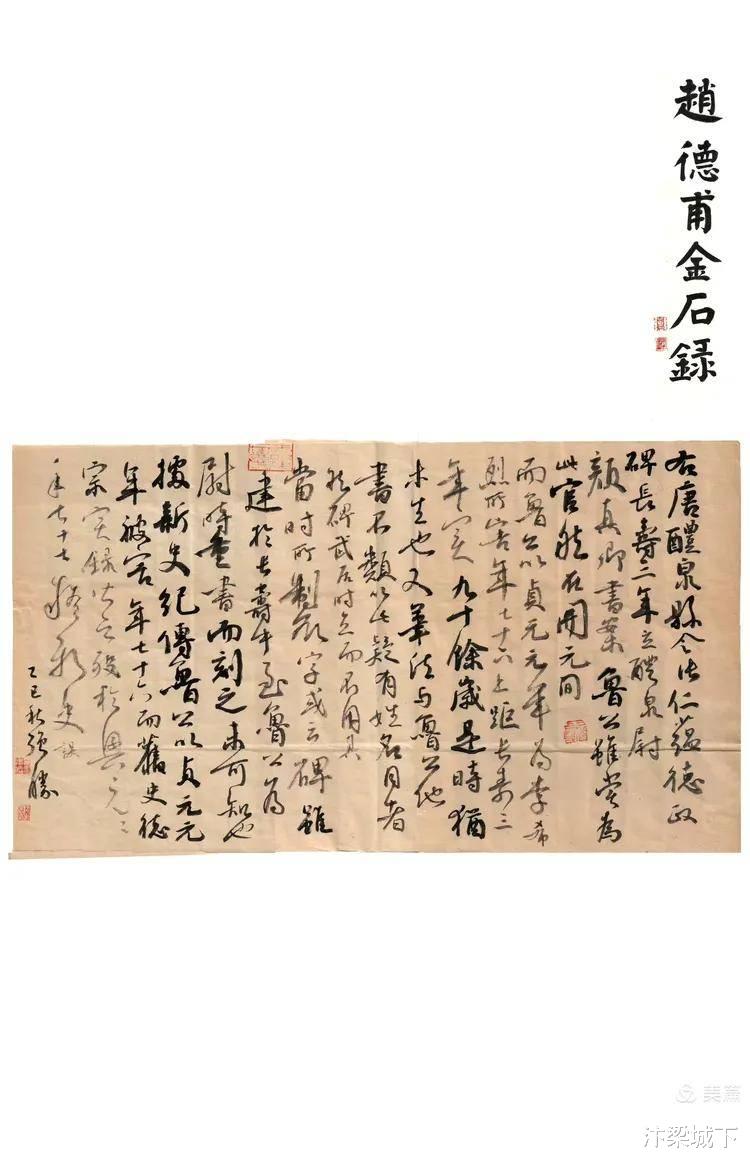 趙德甫金石録
右唐醴泉縣令張仁蘊德政
碑長壽三年立醴泉尉
顏真卿書案魯公雖嘗為
此官然在開元間
而魯公以貞元元年為李希
烈所害年七十六上距長壽三
年実九十餘歲是時猶
未生也又筆法与魯公他
書不類以此疑有姓名同者
然碑武后時立而不用其
當時所製字或云碑雖
建於長壽中至魯公為
尉時重書而刻之未可知也
據新史紀傳魯公以貞元元
年被害年七十六而舊史德
宗実録皆云歿於興元〻
年七十七新史誤
乙巳秋強勝
美篇
汴梁城下